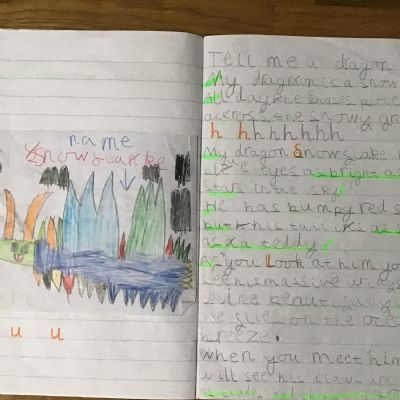 name
Snowscarke
u u
Tell me a dragon
My dragon is a snow
All day he
accros the snowy gra
h h h h h h h h h
My dragon Snowscake
blue eyes as bright a
stars in the sky
He has bumpy red s
but his tail is as s
as a teddy
As you Look at him yo
see his massive wings
beautifuly
on the oce
breeze.
when you meet him
will see his claws are